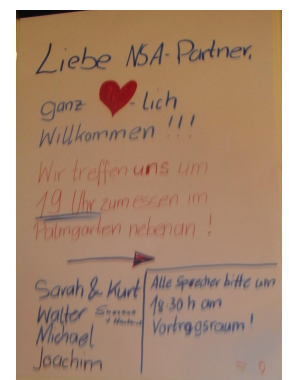 Liebe NSA-Partner,
ganz ❤-lich
Willkommen !!!
Wir treffen uns um
19 Uhr zum essen im
Palmgarten nebenan !
Sarah & Kurt
Walter
Michael
Joachim
Alle Sprecher bitte um
18:30 h am
Vortragsraum !